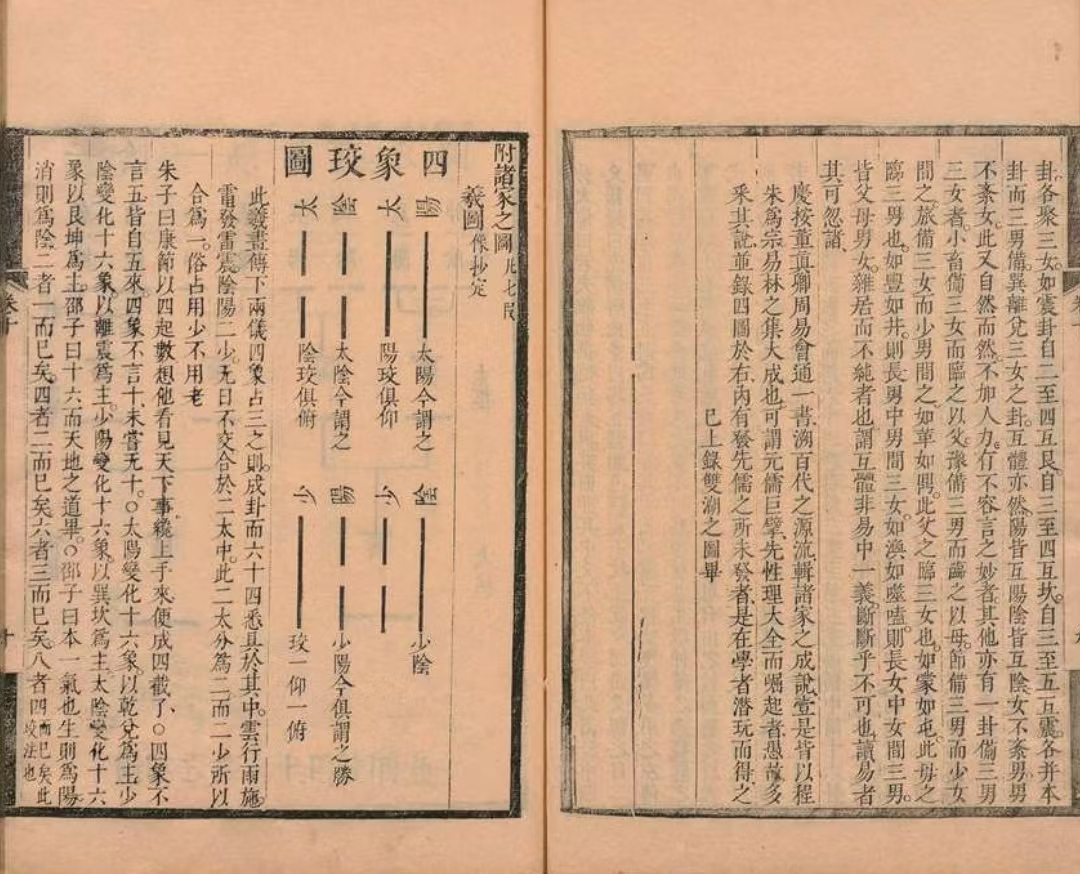 卦各聚三女如震卦自二至四互艮自三至四互坎自三至五互震各并本
卦而三男備巽離兌三女之卦互體亦然陽皆互陽陰皆互陰女不紊男男
不紊女此又自然而然不加人力有不容言之妙者其他亦有一卦備三男
三女者小畜備三女而臨之以父豫備三男而臨之以母節備三男而少女
間之旅備三女而少男間之如革如此父之臨三女也如蒙如屯此母之
臨三男也如豐如井則長男中男間三女如渙如噬嗑則長女中女間三男
皆父母男女雜居而不純者也謂互體非易中一義斷斷乎不可也讀易者
其可忽諸
慶按董眞卿周易會通一書溯百代之源流輯諸家之成說壹是皆以程
朱為宗易林之集大成也可謂元儒巨擘先性理大全而崛起者愚故多
采其說並錄四圖於右內有發先儒之所未發者是在學者潛玩而得之
已上錄雙湖之圖畢
附諸家之圖
羲圖
四象珓圖
太陽 太陽今謂之陽珓俱仰
太陰 太陰今謂之陰珓俱俯
少陰 少陰
少陽 少陽今俱謂之勝珓一仰一俯
此羲畫傳下兩儀四象占三之則成卦而六十四悉具於其中雲行雨施
電發雷震陰陽二少无日不交合於二太中此二太分為二而二少所以
合為一俗占用少不用老
朱子曰康節以四起數想他看見天下事纔上手來便成四截了○四象不
言五皆自五來四象不言十未嘗无十○太陽變化十六象以乾兌為主少
陰變化十六象以離震為主少陽變化十六象以巽坎為主太陰變化十六
象以艮坤為主邵子曰十六而天地之道畢○邵子曰本一氣也生則為陽
消則為陰二者一而已矣四者二而已矣六者三而已矣八者四而已矣此珓法也
卷十
十